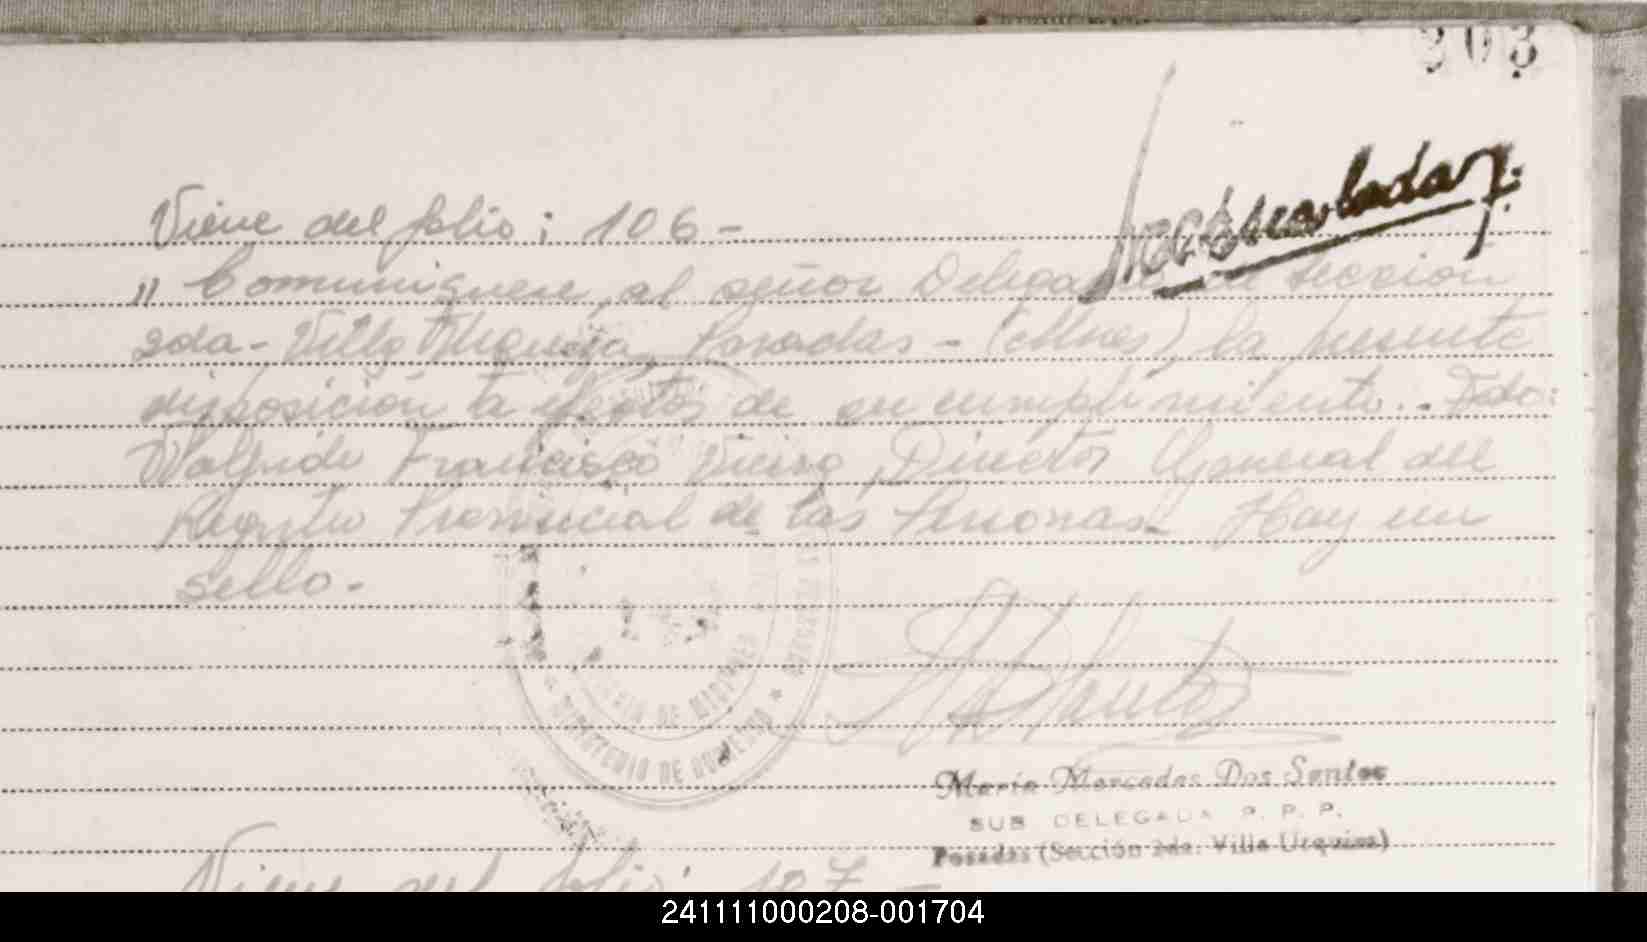 303
Viene del folio: 106-
" Comuniquese, al señor Delega sección
2da- Villa Urquiza, Posadas - (Mnes), la presente
disposición a efectos de su cumplimiento.- Fdo:
Walfrido Francisco Vieira, Director General del
Registro Provincial de las Personas- Hay un
sello.-
María Mercedes Dos Santos
SUB DELEGADA R. P. P.
Posadas (Sección 2da. Villa Urquiza)
Viene del folio: 107-
241111000208-001704